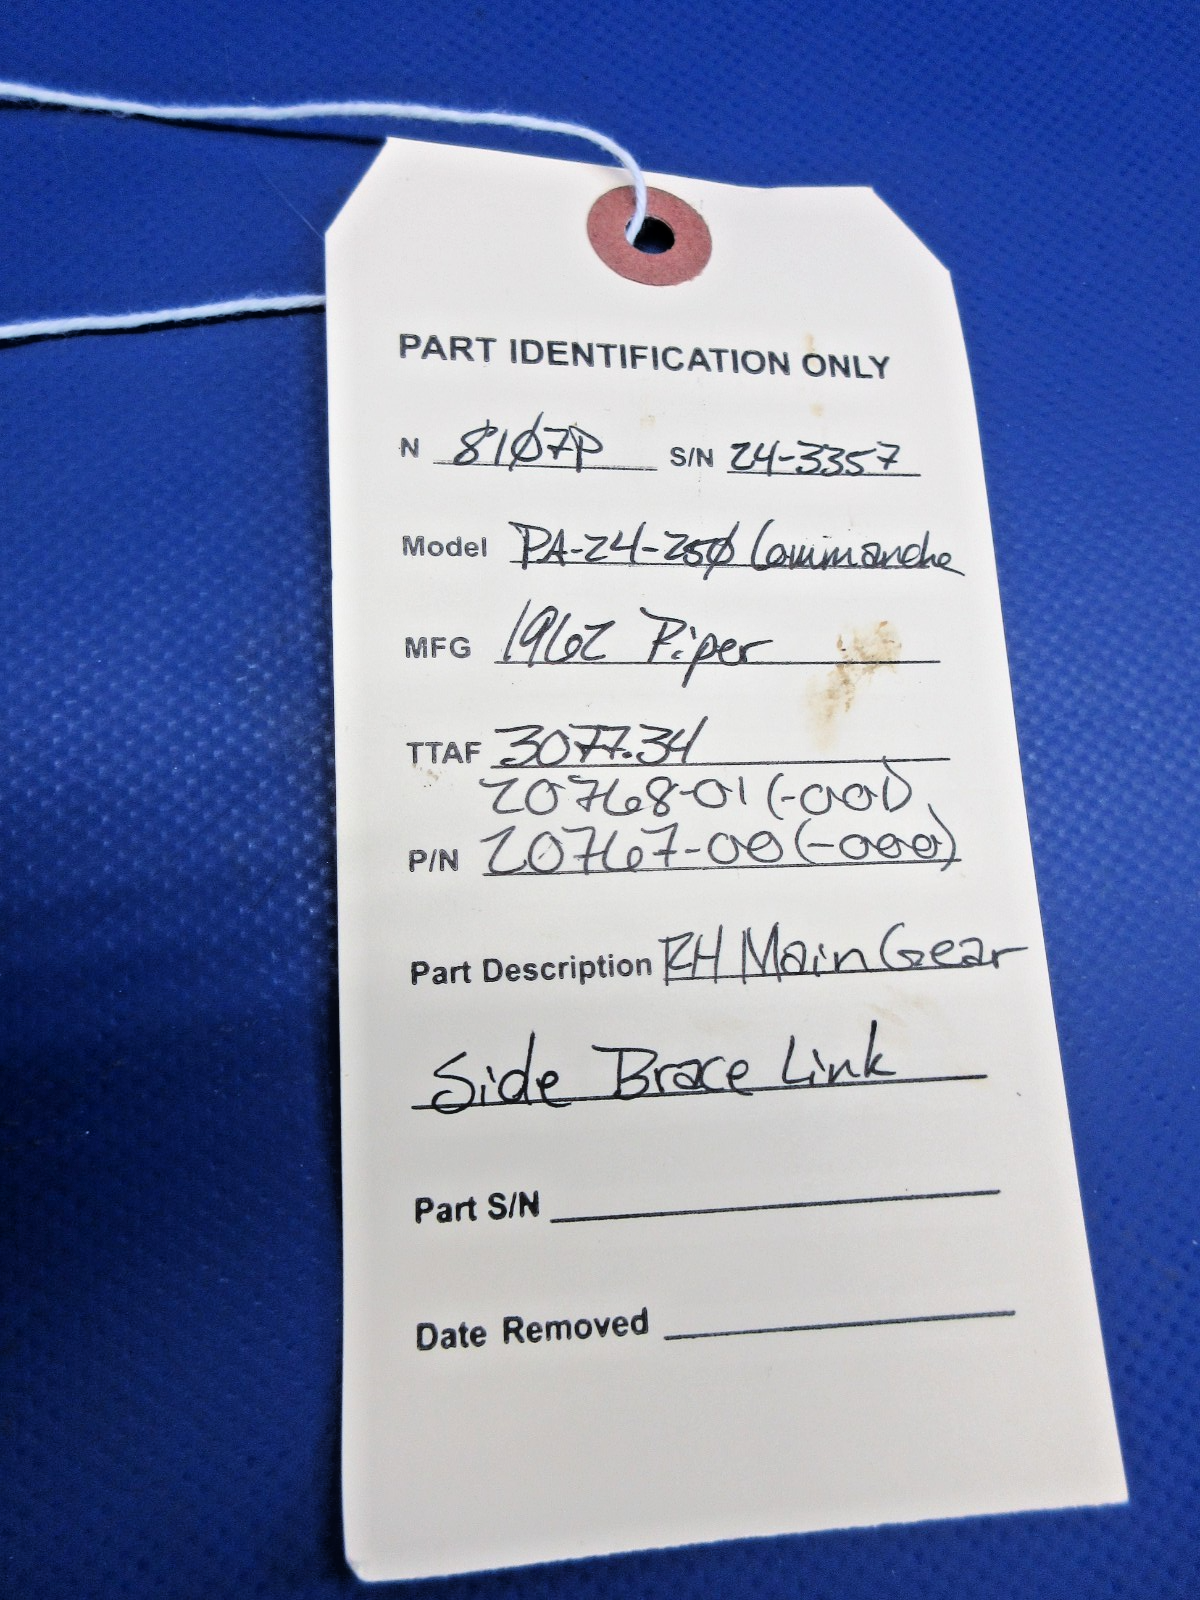 PART IDENTIFICATION ONLY
N 81Ø7P S/N 24-3357
Model PA-24-25Ø Commanche
MFG 1962 Piper
TTAF 3077.34
20768-01 (-001)
P/N 20767-00 (-000)
Part Description RH Main Gear
Side Brace Link
Part S/N
Date Removed